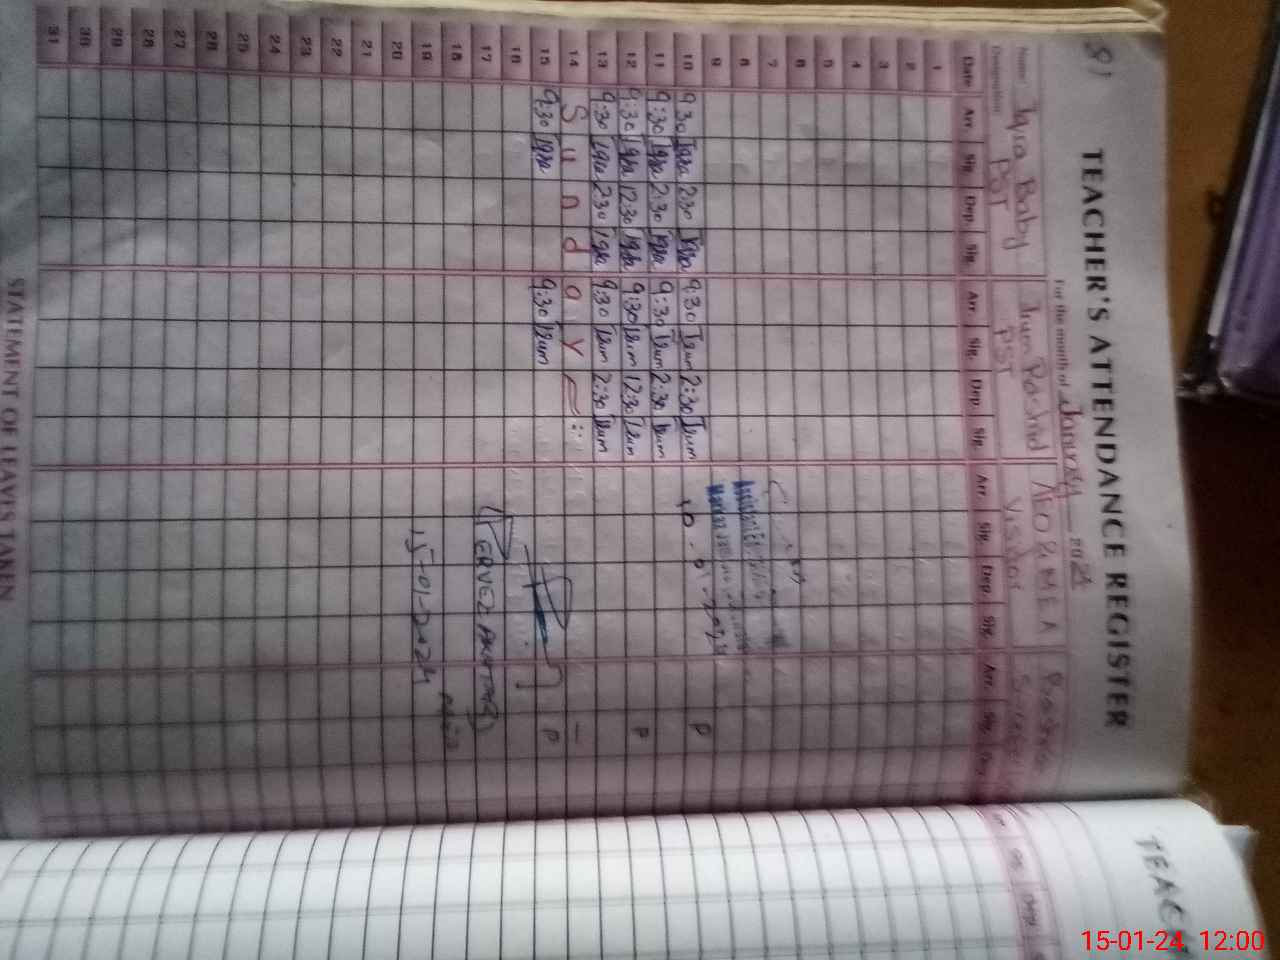 TEACHER'S ATTENDANCE REGISTER
For the month of January 2024
Name: Iqra Baby Irum Rashid AEO & MEA
Designation: PST PST Visitor
Date Arr. Sig. Dep. Sig. Arr. Sig. Dep. Sig. Arr. Sig. Dep. Sig. Arr. Sig. Dep.
1
2
3
4
5
6
7
8
9
10 9:30 Iqra 2:30 Iqra 9:30 Irum 2:30 Irum 10-01-2024 P
11 9:30 Iqra 2:30 Iqra 9:30 Irum 2:30 Irum
12 9:30 Iqra 12:30 Iqra 9:30 Irum 12:30 Irum P
13 9:30 Iqra 2:30 Iqra 9:30 Irum 2:30 Irum
14 Sunday –
15 9:30 Iqra 9:30 Irum P
16
17 PERVEZ
18
19 15-01-2024
20
21
22
23
24
25
26
27
28
29
30
31
STATEMENT OF LEAVES TAKEN
TEACH
15-01-24 12:00